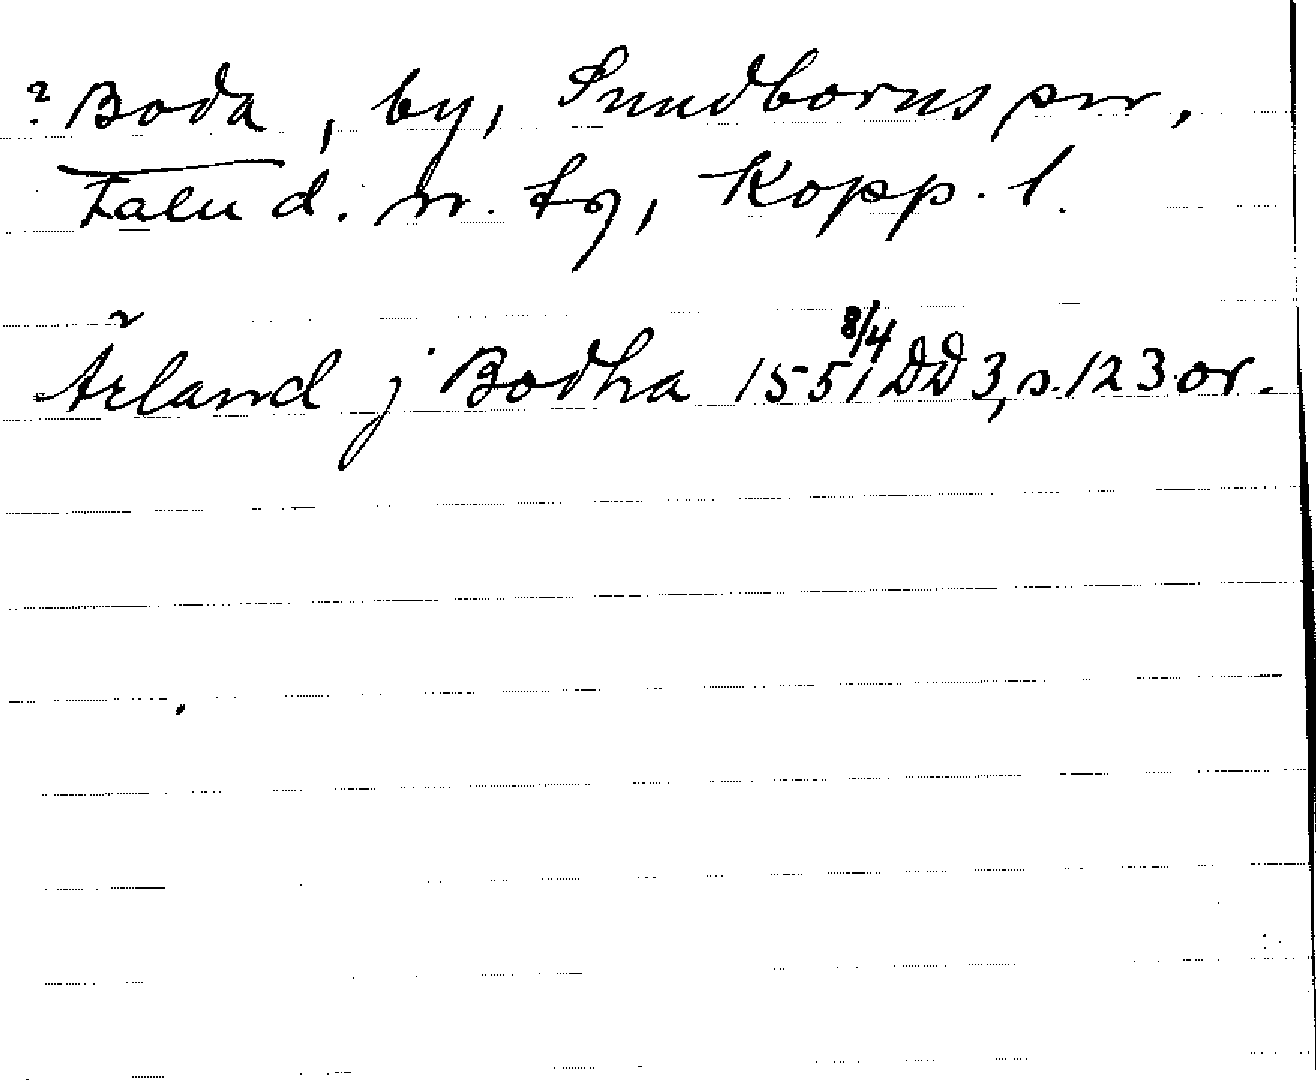 ? Boda, by, Sundborns sn,
Falu d. n. tg, Kopp. l.
Ärland j Bodha 1551 8/4 DD 3, s. 123 or.